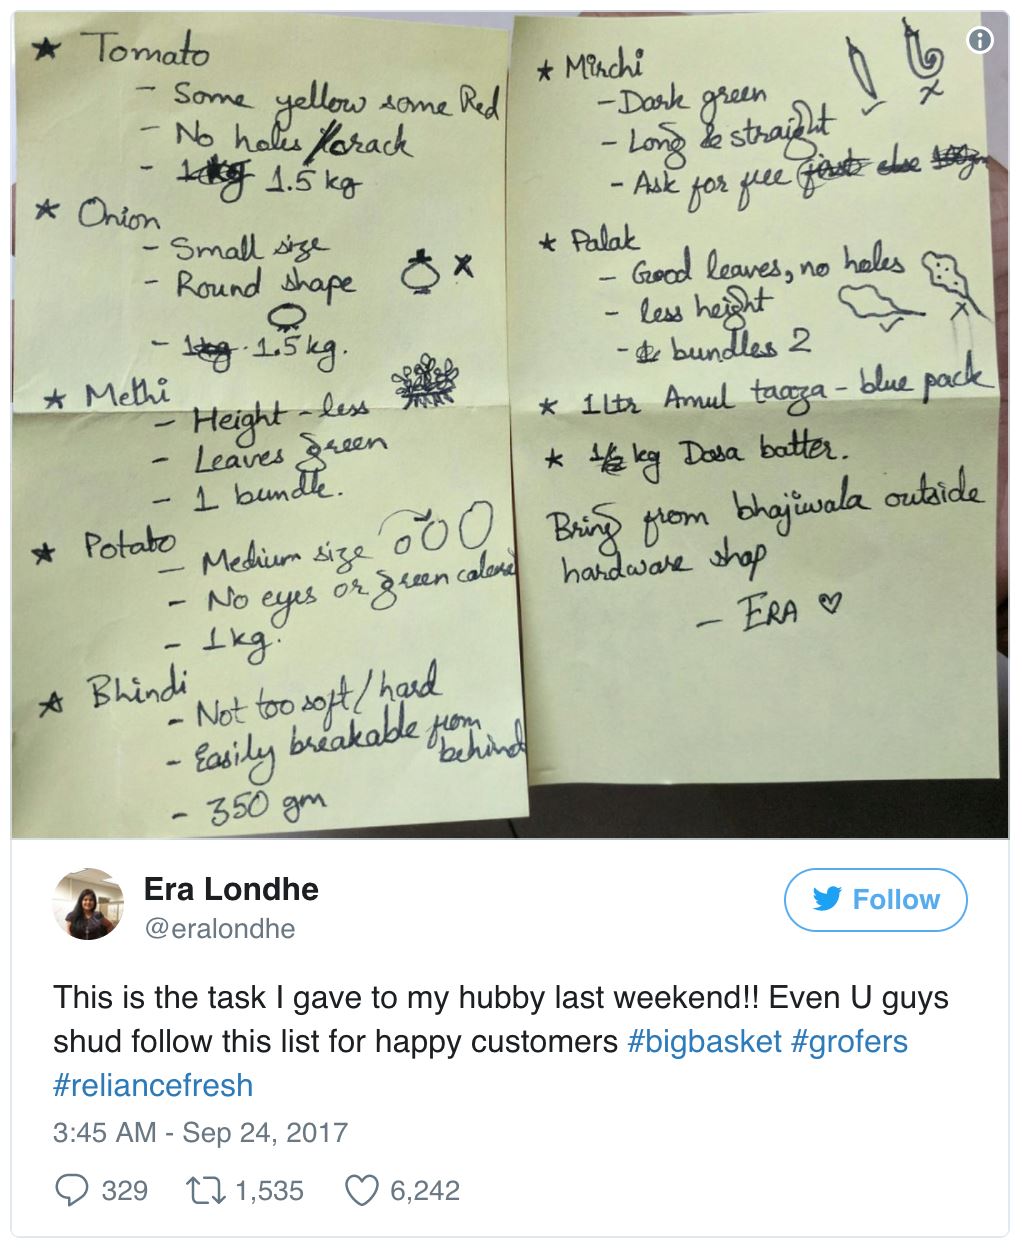 ★ Tomato
- Some yellow some Red
- No holes / crack
- 1.5 kg
★ Onion
- Small size
- Round shape
x
- 1.5 kg.
★ Methi
- Height - less
- Leaves green
- 1 bundle.
★ Potato
- Medium size
- No eyes or green colored
- 1 kg.
★ Bhindi
- Not too soft / hard
- Easily breakable from
behind
- 350 gm
★ Mirchi
- Dark green
- Long & straight
- Ask for free
★ Palak
- Good leaves, no holes
- less height
- bundles 2
★ 1 Ltr Amul taaza - blue pack
★ kg Dosa batter.
Bring from bhajiwala outside
hardware shop
- ERA ♡
Era Londhe
@eralondhe
Follow
This is the task I gave to my hubby last weekend!! Even U guys
shud follow this list for happy customers #bigbasket #grofers
#reliancefresh
3:45 AM - Sep 24, 2017
329 1,535 6,242